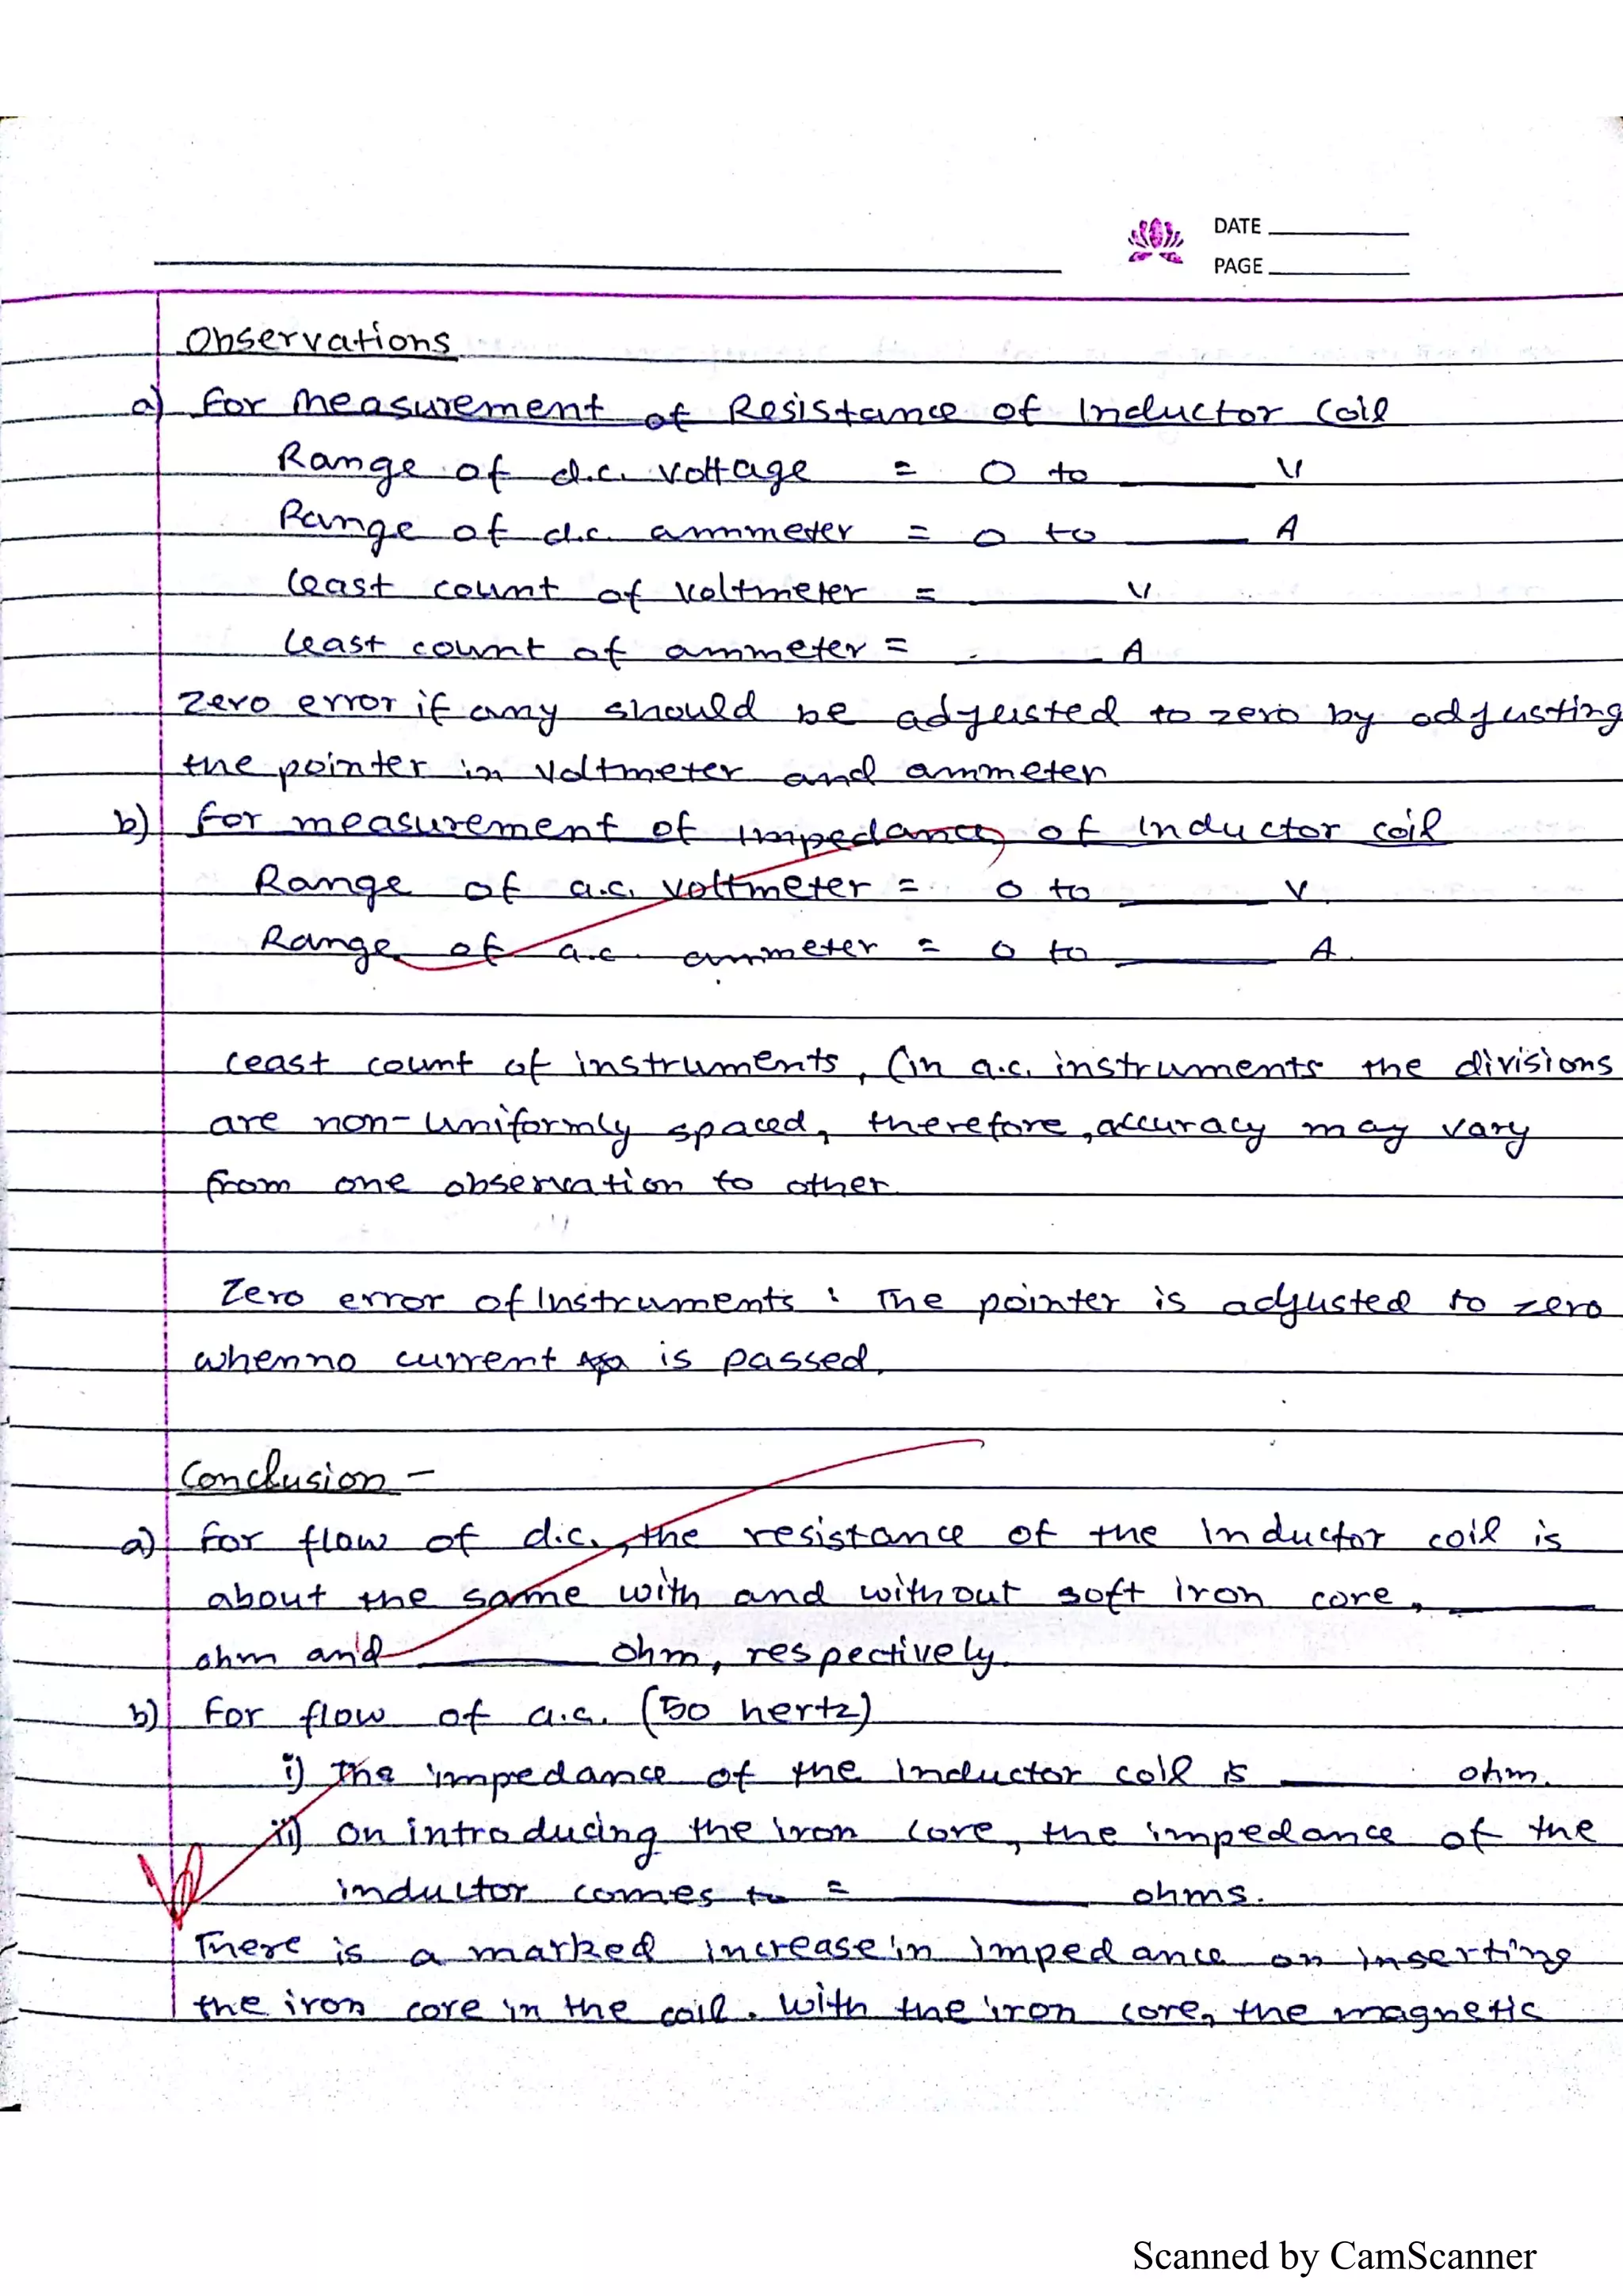 DATE
PAGE
Observations
a) For Measurement of Resistance of Inductor Coil
Range of d.c. voltage = 0 to ____ V
Range of d.c. ammmeter = 0 to ____ A
Least count of voltmeter = ____ V
Least count of ammeter = ____ A
Zero error if any should be adjusted to zero by adjusting
the pointer in Voltmeter and ammeter
b) For measurement of impedance of Inductor coil
Range of a.c. voltmeter = 0 to ____ V
Range of a.c. ammeter = 0 to ____ A.
Least count of instruments, (in a.c. instruments the divisions
are non-uniformly spaced, therefore, accuracy may vary
from one observation to other.
Zero error of Instruments : The pointer is adjusted to zero
when no current is passed.
Conclusion -
a) For flow of d.c., the resistance of the Inductor coil is
about the same with and without soft iron core, ____
ohm and ____ ohm, respectively.
b) For flow of a.c. (50 hertz)
i) The impedance of the inductor coil is ____ ohm.
ii) On introducing the iron core, the impedance of the
inductor comes to = ____ ohms.
There is a marked increase in impedance on inserting
the iron core in the coil. With the iron core, the magnetic
Scanned by CamScanner